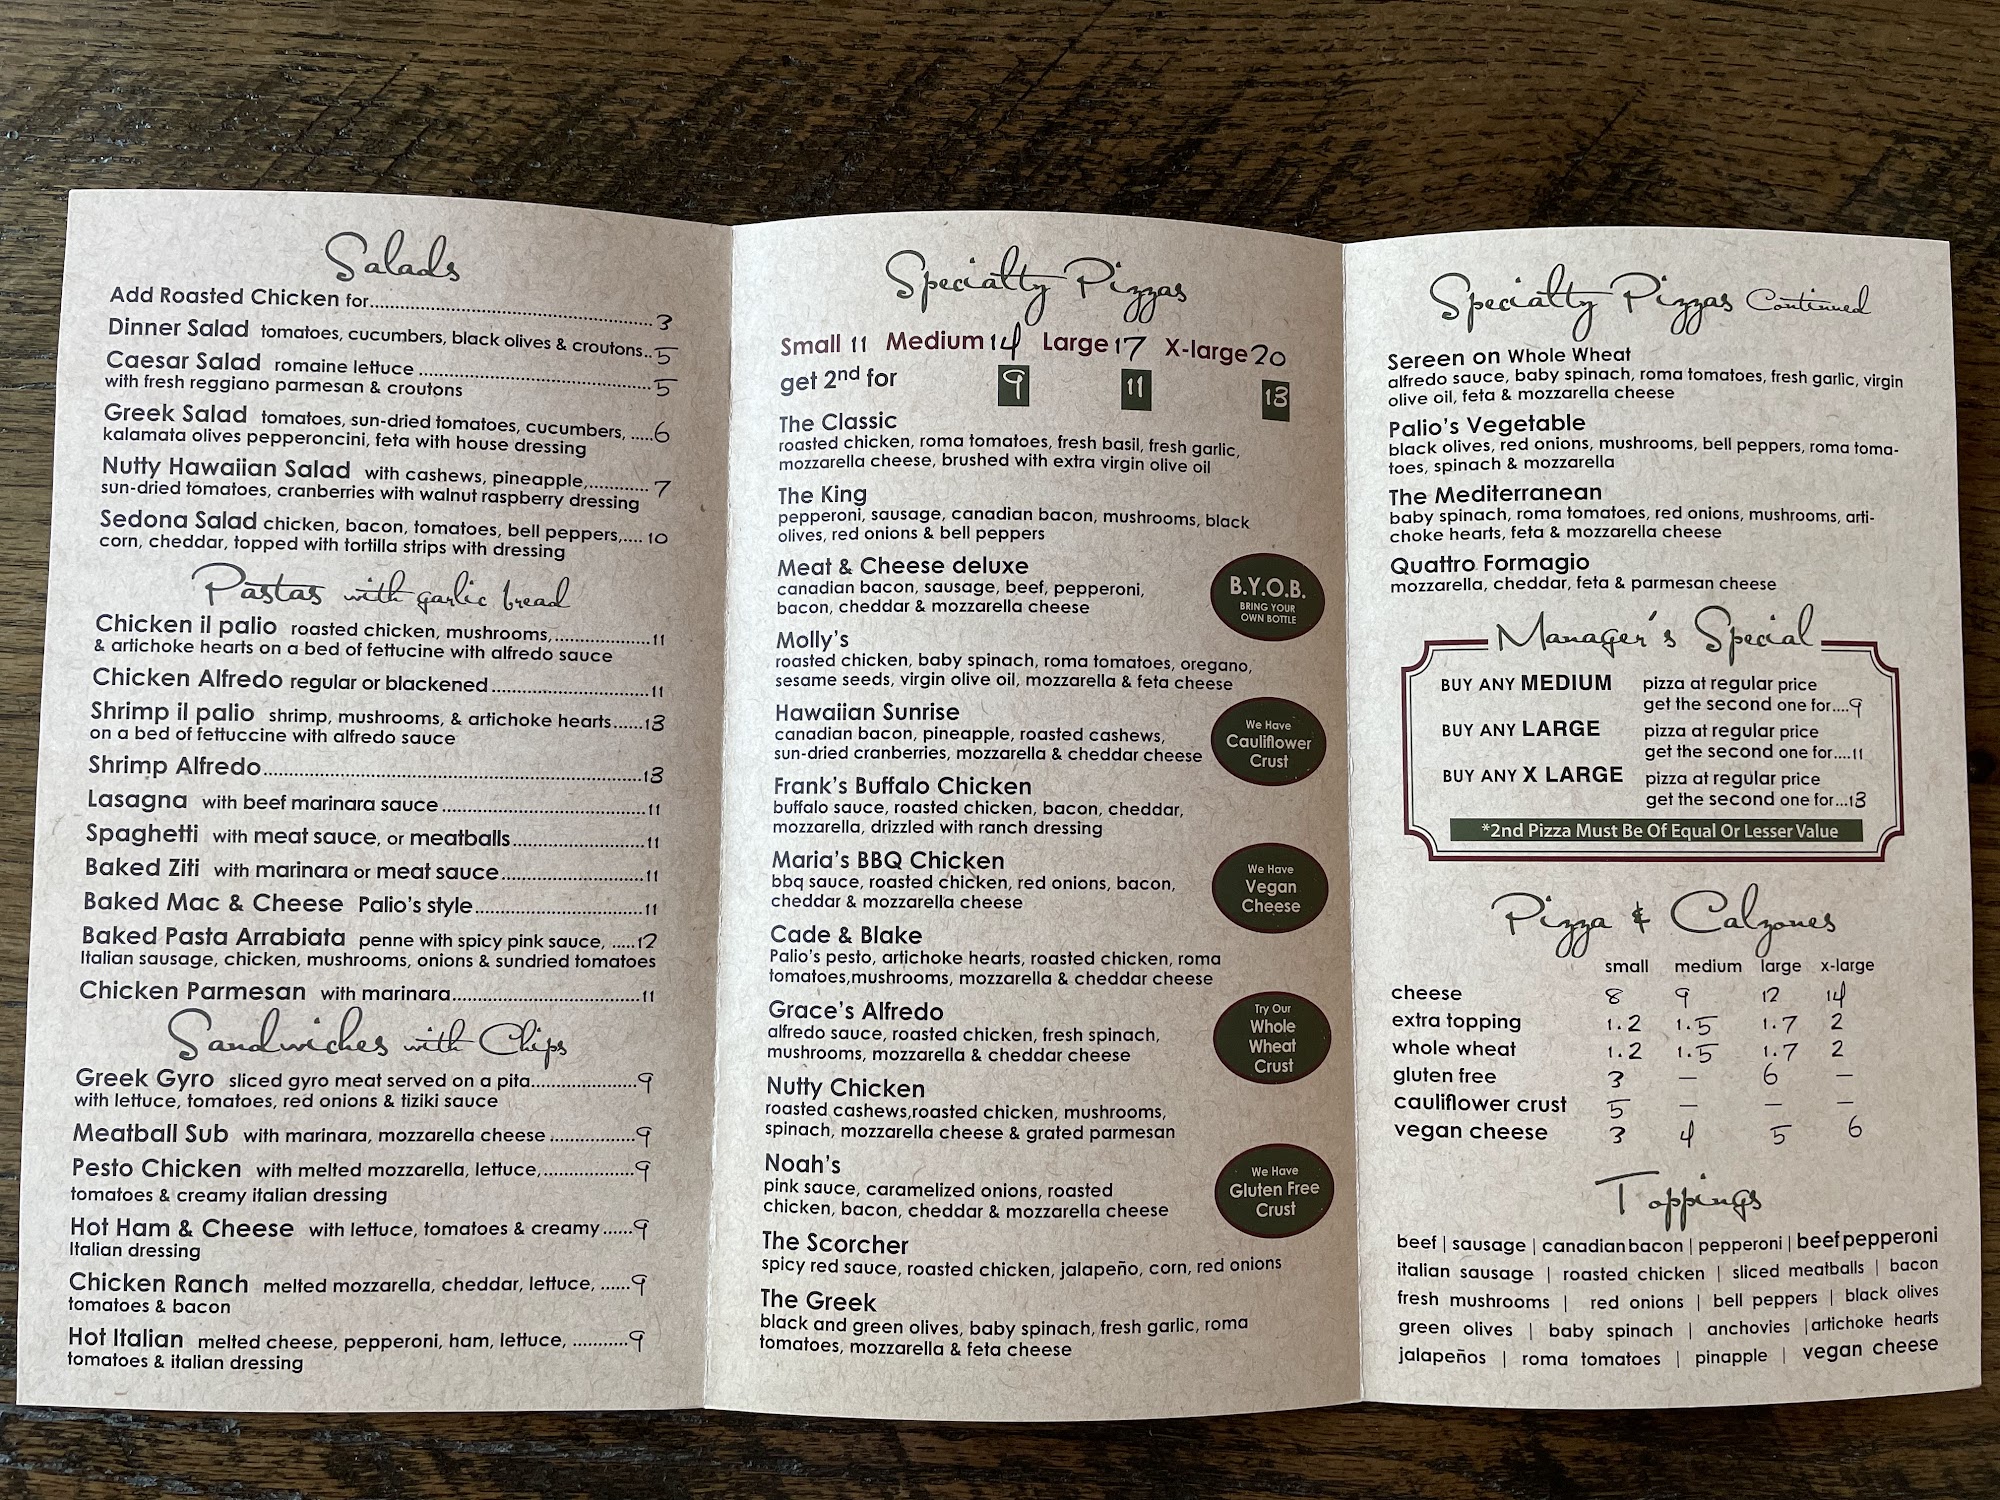 Salads
Add Roasted Chicken for..........3
Dinner Salad tomatoes, cucumbers, black olives & croutons..5
Caesar Salad romaine lettuce..........5
with fresh reggiano parmesan & croutons
Greek Salad tomatoes, sun-dried tomatoes, cucumbers, .....6
kalamata olives pepperoncini, feta with house dressing
Nutty Hawaiian Salad with cashews, pineapple,............7
sun-dried tomatoes, cranberries with walnut raspberry dressing
Sedona Salad chicken, bacon, tomatoes, bell peppers,.... 10
corn, cheddar, topped with tortilla strips with dressing
Pastas with garlic bread
Chicken il palio roasted chicken, mushrooms,..........11
& artichoke hearts on a bed of fettucine with alfredo sauce
Chicken Alfredo regular or blackened..........11
Shrimp il palio shrimp, mushrooms, & artichoke hearts......13
on a bed of fettuccine with alfredo sauce
Shrimp Alfredo..........13
Lasagna with beef marinara sauce..........11
Spaghetti with meat sauce, or meatballs..........11
Baked Ziti with marinara or meat sauce..........11
Baked Mac & Cheese Palio's style..........11
Baked Pasta Arrabiata penne with spicy pink sauce, .....12
Italian sausage, chicken, mushrooms, onions & sundried tomatoes
Chicken Parmesan with marinara..........11
Sandwiches with Chips
Greek Gyro sliced gyro meat served on a pita..........9
with lettuce, tomatoes, red onions & tiziki sauce
Meatball Sub with marinara, mozzarella cheese..........9
Pesto Chicken with melted mozzarella, lettuce,..........9
tomatoes & creamy italian dressing
Hot Ham & Cheese with lettuce, tomatoes & creamy......9
Italian dressing
Chicken Ranch melted mozzarella, cheddar, lettuce, ......9
tomatoes & bacon
Hot Italian melted cheese, pepperoni, ham, lettuce, ...........9
tomatoes & italian dressing
Specialty Pizzas
Small 11 Medium 14 Large 17 X-large 20
get 2nd for 9 11 13
The Classic
roasted chicken, roma tomatoes, fresh basil, fresh garlic,
mozzarella cheese, brushed with extra virgin olive oil
The King
pepperoni, sausage, canadian bacon, mushrooms, black
olives, red onions & bell peppers
Meat & Cheese deluxe
canadian bacon, sausage, beef, pepperoni,
bacon, cheddar & mozzarella cheese
B.Y.O.B.
BRING YOUR
OWN BOTTLE
Molly's
roasted chicken, baby spinach, roma tomatoes, oregano,
sesame seeds, virgin olive oil, mozzarella & feta cheese
Hawaiian Sunrise
canadian bacon, pineapple, roasted cashews,
sun-dried cranberries, mozzarella & cheddar cheese
We Have
Cauliflower
Crust
Frank's Buffalo Chicken
buffalo sauce, roasted chicken, bacon, cheddar,
mozzarella, drizzled with ranch dressing
Maria's BBQ Chicken
bbq sauce, roasted chicken, red onions, bacon,
cheddar & mozzarella cheese
We Have
Vegan
Cheese
Cade & Blake
Palio's pesto, artichoke hearts, roasted chicken, roma
tomatoes,mushrooms, mozzarella & cheddar cheese
Grace's Alfredo
alfredo sauce, roasted chicken, fresh spinach,
mushrooms, mozzarella & cheddar cheese
Try Our
Whole
Wheat
Crust
Nutty Chicken
roasted cashews,roasted chicken, mushrooms,
spinach, mozzarella cheese & grated parmesan
Noah's
pink sauce, caramelized onions, roasted
chicken, bacon, cheddar & mozzarella cheese
We Have
Gluten Free
Crust
The Scorcher
spicy red sauce, roasted chicken, jalapeño, corn, red onions
The Greek
black and green olives, baby spinach, fresh garlic, roma
tomatoes, mozzarella & feta cheese
Specialty Pizzas Continued
Sereen on Whole Wheat
alfredo sauce, baby spinach, roma tomatoes, fresh garlic, virgin
olive oil, feta & mozzarella cheese
Palio's Vegetable
black olives, red onions, mushrooms, bell peppers, roma toma-
toes, spinach & mozzarella
The Mediterranean
baby spinach, roma tomatoes, red onions, mushrooms, arti-
choke hearts, feta & mozzarella cheese
Quattro Formagio
mozzarella, cheddar, feta & parmesan cheese
Manager's Special
BUY ANY MEDIUM pizza at regular price
get the second one for....9
BUY ANY LARGE pizza at regular price
get the second one for....11
BUY ANY X LARGE pizza at regular price
get the second one for...13
*2nd Pizza Must Be Of Equal Or Lesser Value
Pizza & Calzones
small medium large x-large
cheese 8 9 12 14
extra topping 1.2 1.5 1.7 2
whole wheat 1.2 1.5 1.7 2
gluten free 3 — 6 —
cauliflower crust 5 — — —
vegan cheese 3 4 5 6
Toppings
beef | sausage | canadian bacon | pepperoni | beef pepperoni
italian sausage | roasted chicken | sliced meatballs | bacon
fresh mushrooms | red onions | bell peppers | black olives
green olives | baby spinach | anchovies | artichoke hearts
jalapeños | roma tomatoes | pinapple | vegan cheese